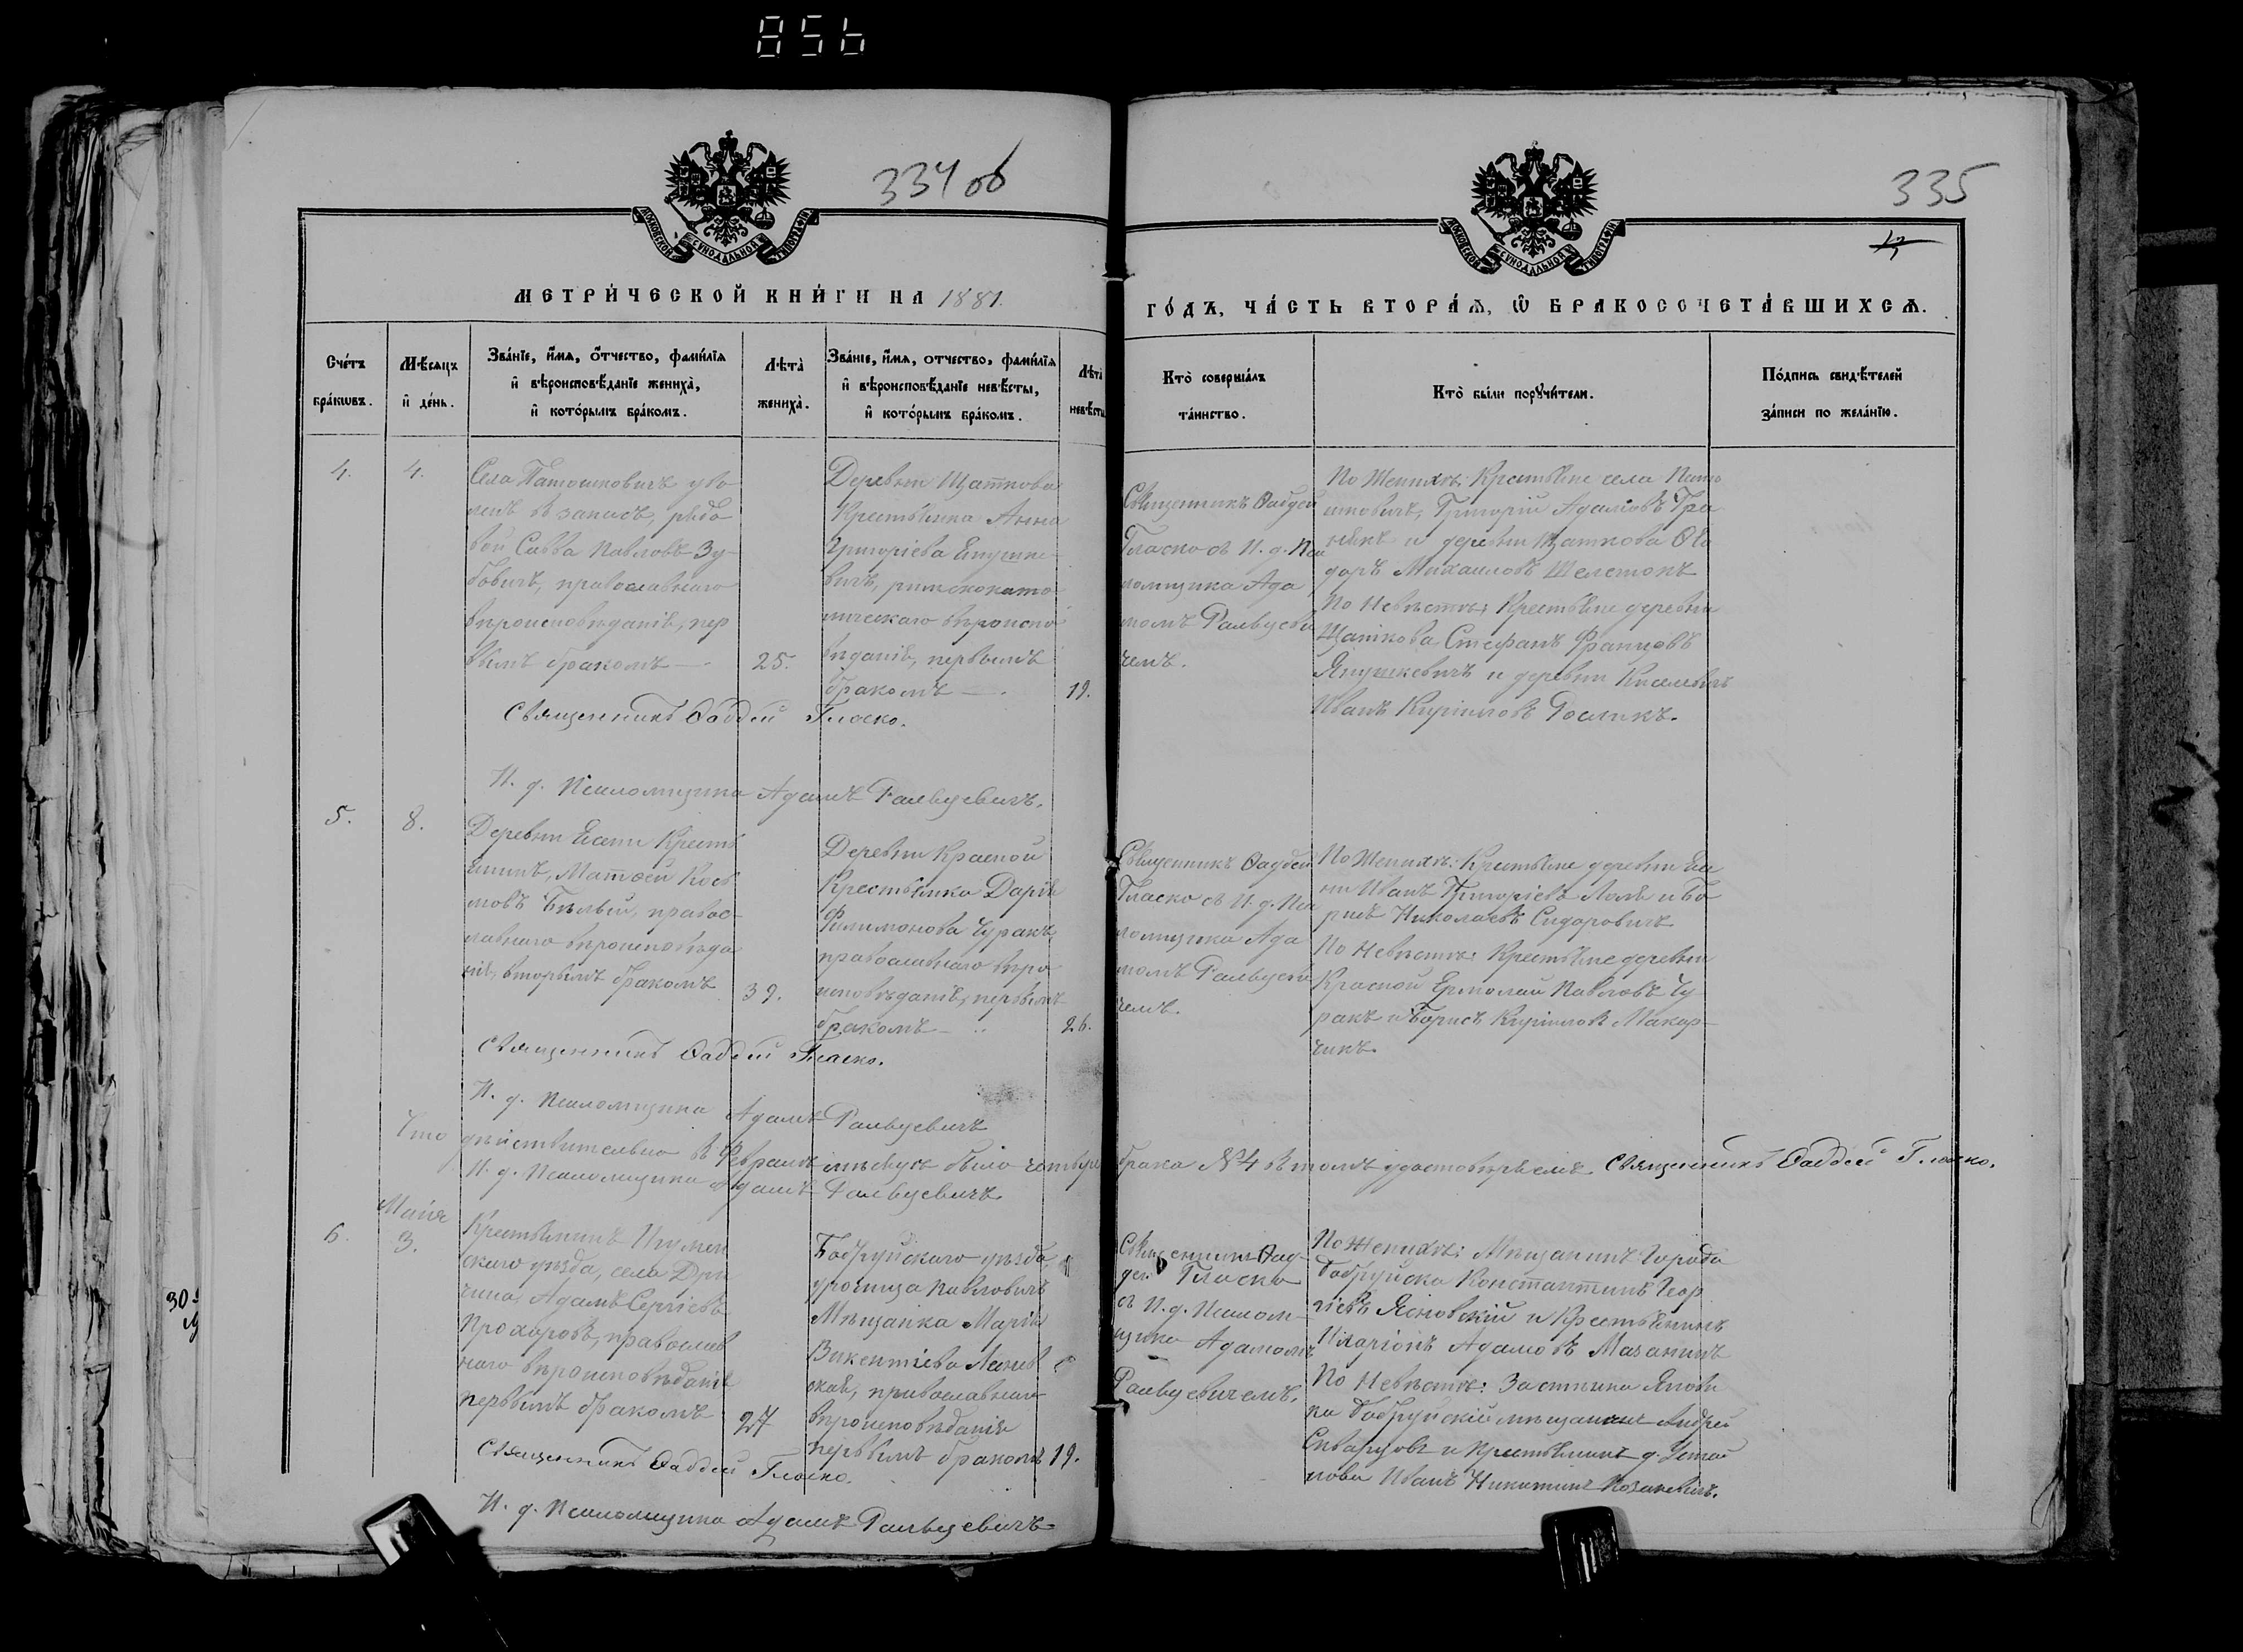 856
334 об
335
МОСКОВСКОЙ СѴНОДАЛЬНОЙ ТИПОГРАФІИ
МОСКОВСКОЙ СѴНОДАЛЬНОЙ ТИПОГРАФІИ
МЕТРИ́ЧЕСКОЙ КНИ́ГИ НА 1881.
ГО́ДЪ, ЧА́СТЬ ВТОРА́Ѧ, Ѡ҆ БРАКОСОЧЕТА́ВШИХСѦ.
Сче́тъ бра́кѡвъ.
Мѣ́сяцъ и҆ де́нь.
Зва́нїе, и҆́мѧ, ѻ҆́тчество, фамѝлїѧ
и҆ вѣроисповѣ́данїе жениха̀,
и҆ кото́рымъ бра́комъ.
Лѣта̀ жениха̀.
Зва́нїе, и҆́мѧ, отчество, фамѝлїѧ
и҆ вѣроисповѣ́данїе невѣ́сты,
и҆ кото́рымъ бра́комъ.
Лѣта̀ невѣ́сты
Кто̀ соверша́лъ
та́инство.
Кто̀ бы́ли порꙋчи́тели.
По́дпись свидѣ́телей
за́писи по жела́нїю.
4.
4.
Села Патошковичъ уво
ленъ въ запасъ, рядо
вой Савва Павловъ Зу-
бовичъ, православнаго
вѣроисповѣданія, пер
вымъ бракомъ —
25.
Деревни Щаткова
Крестьянка Анна
Григоріева Янушке-
вичъ, римскокато
лическаго вѣроиспо
вѣданія, первымъ
бракомъ —.
19.
Священникъ Ѳаддей
Гласко съ И. д. Пса
ломщика Ада
момъ Ральцеви
чемъ.
По Женихѣ: Крестьяне села Пато
шковичъ, Григорій Адамовъ
и деревни Щаткова Ѳео
доръ Михаиловъ Шелетокъ
По Невѣстѣ: Крестьяне деревни
Щаткова Стефанъ Францовъ
Янушкевичъ и деревни Киселевичъ
Иванъ Кириловъ
Священникъ Ѳаддей Гласко.
И. д. Псаломщика Адамъ Ральцевичъ.
5.
8.
Деревни Ясени Кресть
янинъ, Матѳей Козь
мовъ Бѣлый, правос-
лавнаго вѣроисповѣда
нія, вторымъ бракомъ
39.
Деревни Красной
Крестьянка Дарія
Филимонова Чуракъ,
православнаго вѣро
исповѣданія, первымъ
бракомъ —
26.
Священникъ Ѳаддей
Гласко съ И. д. Пса
ломщика Ада
момъ Ральцеви
чемъ.
По Женихѣ: Крестьяне деревни Ясе
ни Иванъ Григоріевъ и Бо
рисъ Николаевъ Сидоровичъ
По Невѣстѣ: Крестьяне деревни
Красной Ермолай Павловъ Чу-
ракъ и Борисъ Кириловъ Макар-
чикъ.
Священникъ Ѳаддей Гласко.
И. д. Псаломщика Адамъ Ральцевичъ
Что дѣйствительно въ Февралѣ мѣсяцѣ было четыре брака № 4 въ томъ удостовѣряемъ. Священникъ Ѳаддей Гласко.
И. д. Псаломщика Адамъ Ральцевичъ.
6.
Маія
3.
Крестьянинъ Игумен
скаго уѣзда, села Дри
чина, Адамъ Сергіевъ
Прохоровъ, православ
наго вѣроисповѣданія
первымъ бракомъ
27
Бобруйскаго уѣзда
урочища Павловичъ
Мѣщанка Марія
Викентіева
ская, православнаго
вѣроисповѣданія
первымъ бракомъ
19.
Священникъ Ѳад-
дей Гласко
съ И. д. Псалом-
щика Адамомъ
Ральцевичемъ.
По Женихѣ: Мѣщанинъ города
Бобруйска Константинъ Геор
гіевъ Ясновскій и Крестьянинъ
Иларіонъ Адамовъ Мазаникъ
По Невѣстѣ: Застѣнка
Бобруйскій мѣщанинъ Андрей
и Крестьянинъ д.
Иванъ Никитинъ Козакевичъ.
Священникъ Ѳаддей Гласко.
И. д. Псаломщика Адамъ Ральцевичъ